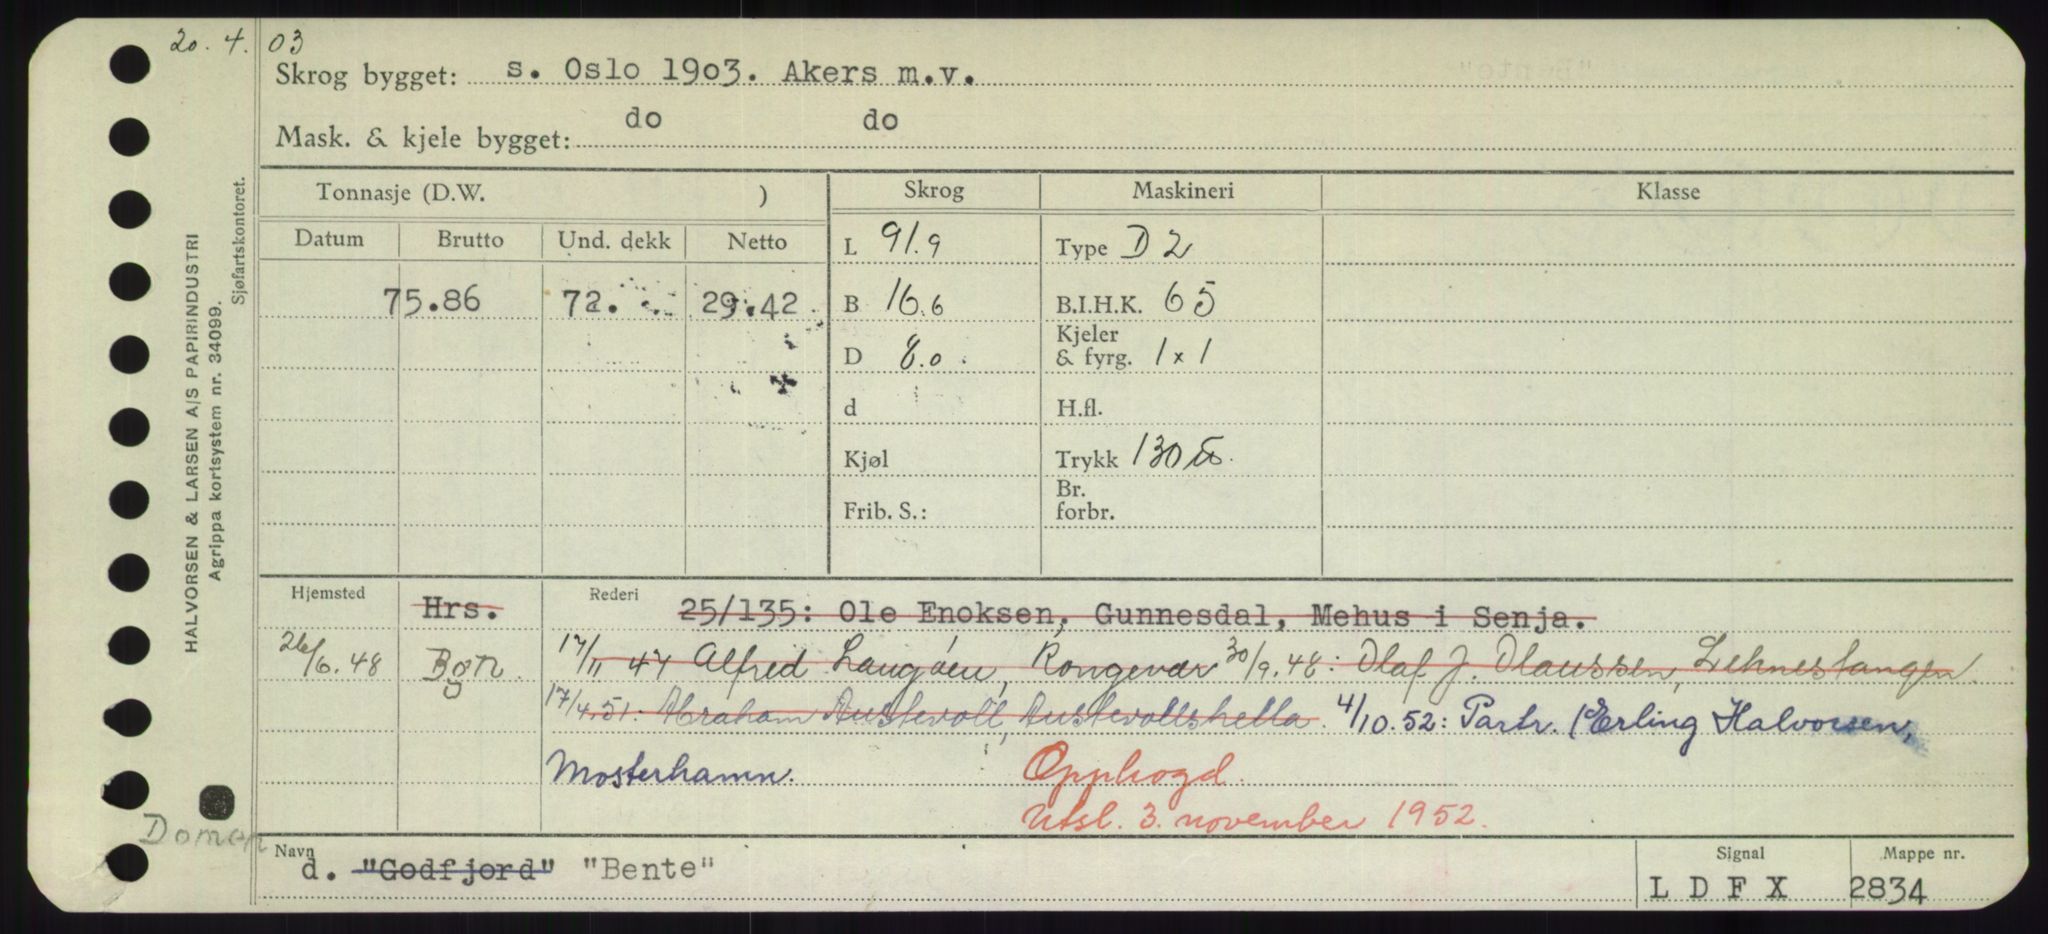 20. 4. 03
Skrog bygget: s. Oslo 1903. Akers m.v.
Mask. & kjele bygget: do do
HALVORSEN & LARSEN A/S PAPIRINDUSTRI
Agrippa kortsystem nr. 34099.
Sjøfartskontoret.
Tonnasje (D.W. ) Skrog Maskineri Klasse
Datum Brutto Und. dekk Netto L 91.9 Type D 2
75.86 72. 29.42 B 16.6 B.I.H.K. 65
D 8.0 Kjeler & fyrg. 1 x 1
d H.fl.
Kjøl Trykk 130
Frib. S.: Br. forbr.
Hjemsted Hrs. Rederi 25/135: Ole Enoksen, Gunnesdal, Mehus i Senja.
26/6.48 Bgn. 17/11 47 Alfred Langöen, Rongevær 30/9.48: Olaf J. Olaussen, Leknestangen.
17/4.51: Abraham Austevoll, Austevollshella. 4/10.52: Partr. (Erling Halvorsen,
Mosterhamn. Opphogd.
Utsl. 3. november 1952.
Domen
Navn d. "Godfjord" "Bente" Signal L D F X Mappe nr. 2834